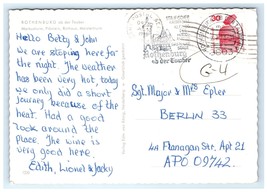 ROTHENBURG ob der Tauber
Hello Betty & John
We are stoping here for
the night. The weather
has been very hot, today
we only did a short
journey because of the
heat. Had a good
look around the
place. The wine is
very good here.
Edith, Lionel & Jacky
Rothenburg
ob der Tauber
30
G-4
Sgt. Major & Mrs Epler
BERLIN 33
411 Flanagan Str, Apt 21
APO 09742.